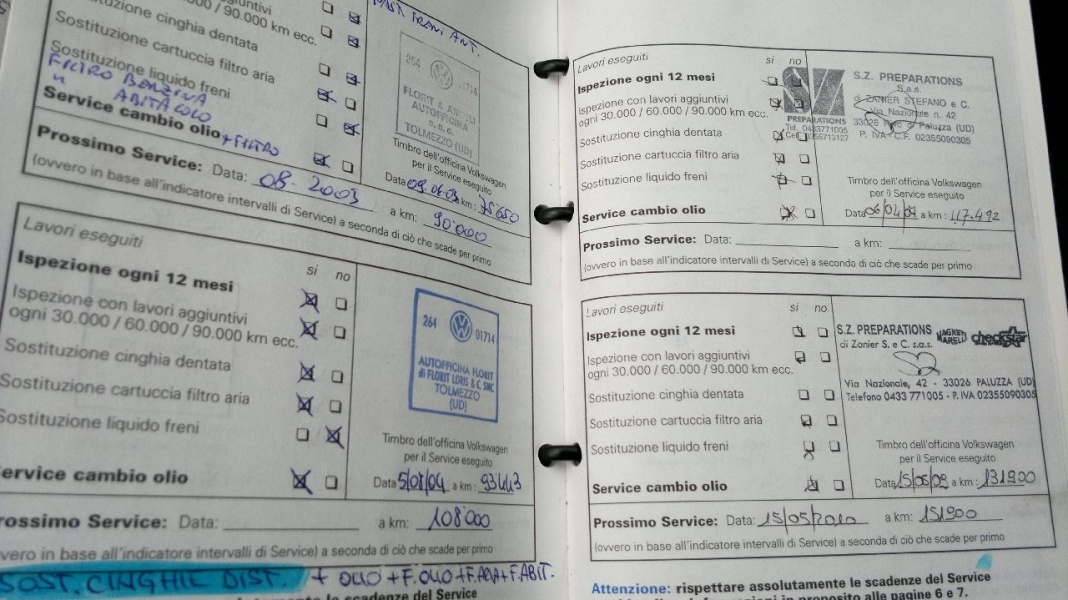 00 / 90.000 km ecc.
Sostituzione cinghia dentata
Sostituzione cartuccia filtro aria
Sostituzione liquido freni
FILTRO BENZINA
" ABITACOLO
Service cambio olio + FILTRO
Prossimo Service: Data: 08. 2003 a km: 90'000
(ovvero in base all'indicatore intervalli di Service) a seconda di ciò che scade per primo
FRENI ANT.
264 01714
AUTOFFICINA
s.n.c.
TOLMEZZO (UD)
Timbro dell'officina Volkswagen
per il Service eseguito
Data km: 75'650
Lavori eseguiti
si no
Ispezione ogni 12 mesi
Ispezione con lavori aggiuntivi
ogni 30.000 / 60.000 / 90.000 km ecc.
Sostituzione cinghia dentata
Sostituzione cartuccia filtro aria
Sostituzione liquido freni
Service cambio olio
264 01714
AUTOFFICINA FLORIT
di FLORIT LORIS & C. SNC
TOLMEZZO
(UD)
Timbro dell'officina Volkswagen
per il Service eseguito
Data 5/08/04 a km: 93443
Prossimo Service: Data: a km: 108'000
(ovvero in base all'indicatore intervalli di Service) a seconda di ciò che scade per primo
SOST. CINGHIE DIST. + OLIO + F.OLIO + F.ARIA + F.ABIT.
le scadenze del Service
Lavori eseguiti
si no
Ispezione ogni 12 mesi
Ispezione con lavori aggiuntivi
ogni 30.000 / 60.000 / 90.000 km ecc.
Sostituzione cinghia dentata
Sostituzione cartuccia filtro aria
Sostituzione liquido freni
Service cambio olio
SZ
PREPARATIONS
Tel. 0433771005
S.Z. PREPARATIONS
S.a.s.
di ZANIER STEFANO e C.
Via Nazionale n. 42
33026 Paluzza (UD)
P. IVA - C.F. 02355090305
Timbro dell'officina Volkswagen
per il Service eseguito
Data 06/04/ a km: 117.492
Prossimo Service: Data: a km:
(ovvero in base all'indicatore intervalli di Service) a seconda di ciò che scade per primo
Lavori eseguiti
si no
Ispezione ogni 12 mesi
Ispezione con lavori aggiuntivi
ogni 30.000 / 60.000 / 90.000 km ecc.
Sostituzione cinghia dentata
Sostituzione cartuccia filtro aria
Sostituzione liquido freni
Service cambio olio
S.Z. PREPARATIONS MAGNETI MARELLI checkstar
di Zanier S. e C. s.a.s.
Via Nazionale, 42 - 33026 PALUZZA (UD)
Telefono 0433 771005 - P. IVA 02355090305
Timbro dell'officina Volkswagen
per il Service eseguito
Data 15/05/09 a km: 131900
Prossimo Service: Data: 15/05/2010 a km: 151900
(ovvero in base all'indicatore intervalli di Service) a seconda di ciò che scade per primo
Attenzione: rispettare assolutamente le scadenze del Service
in proposito alle pagine 6 e 7.